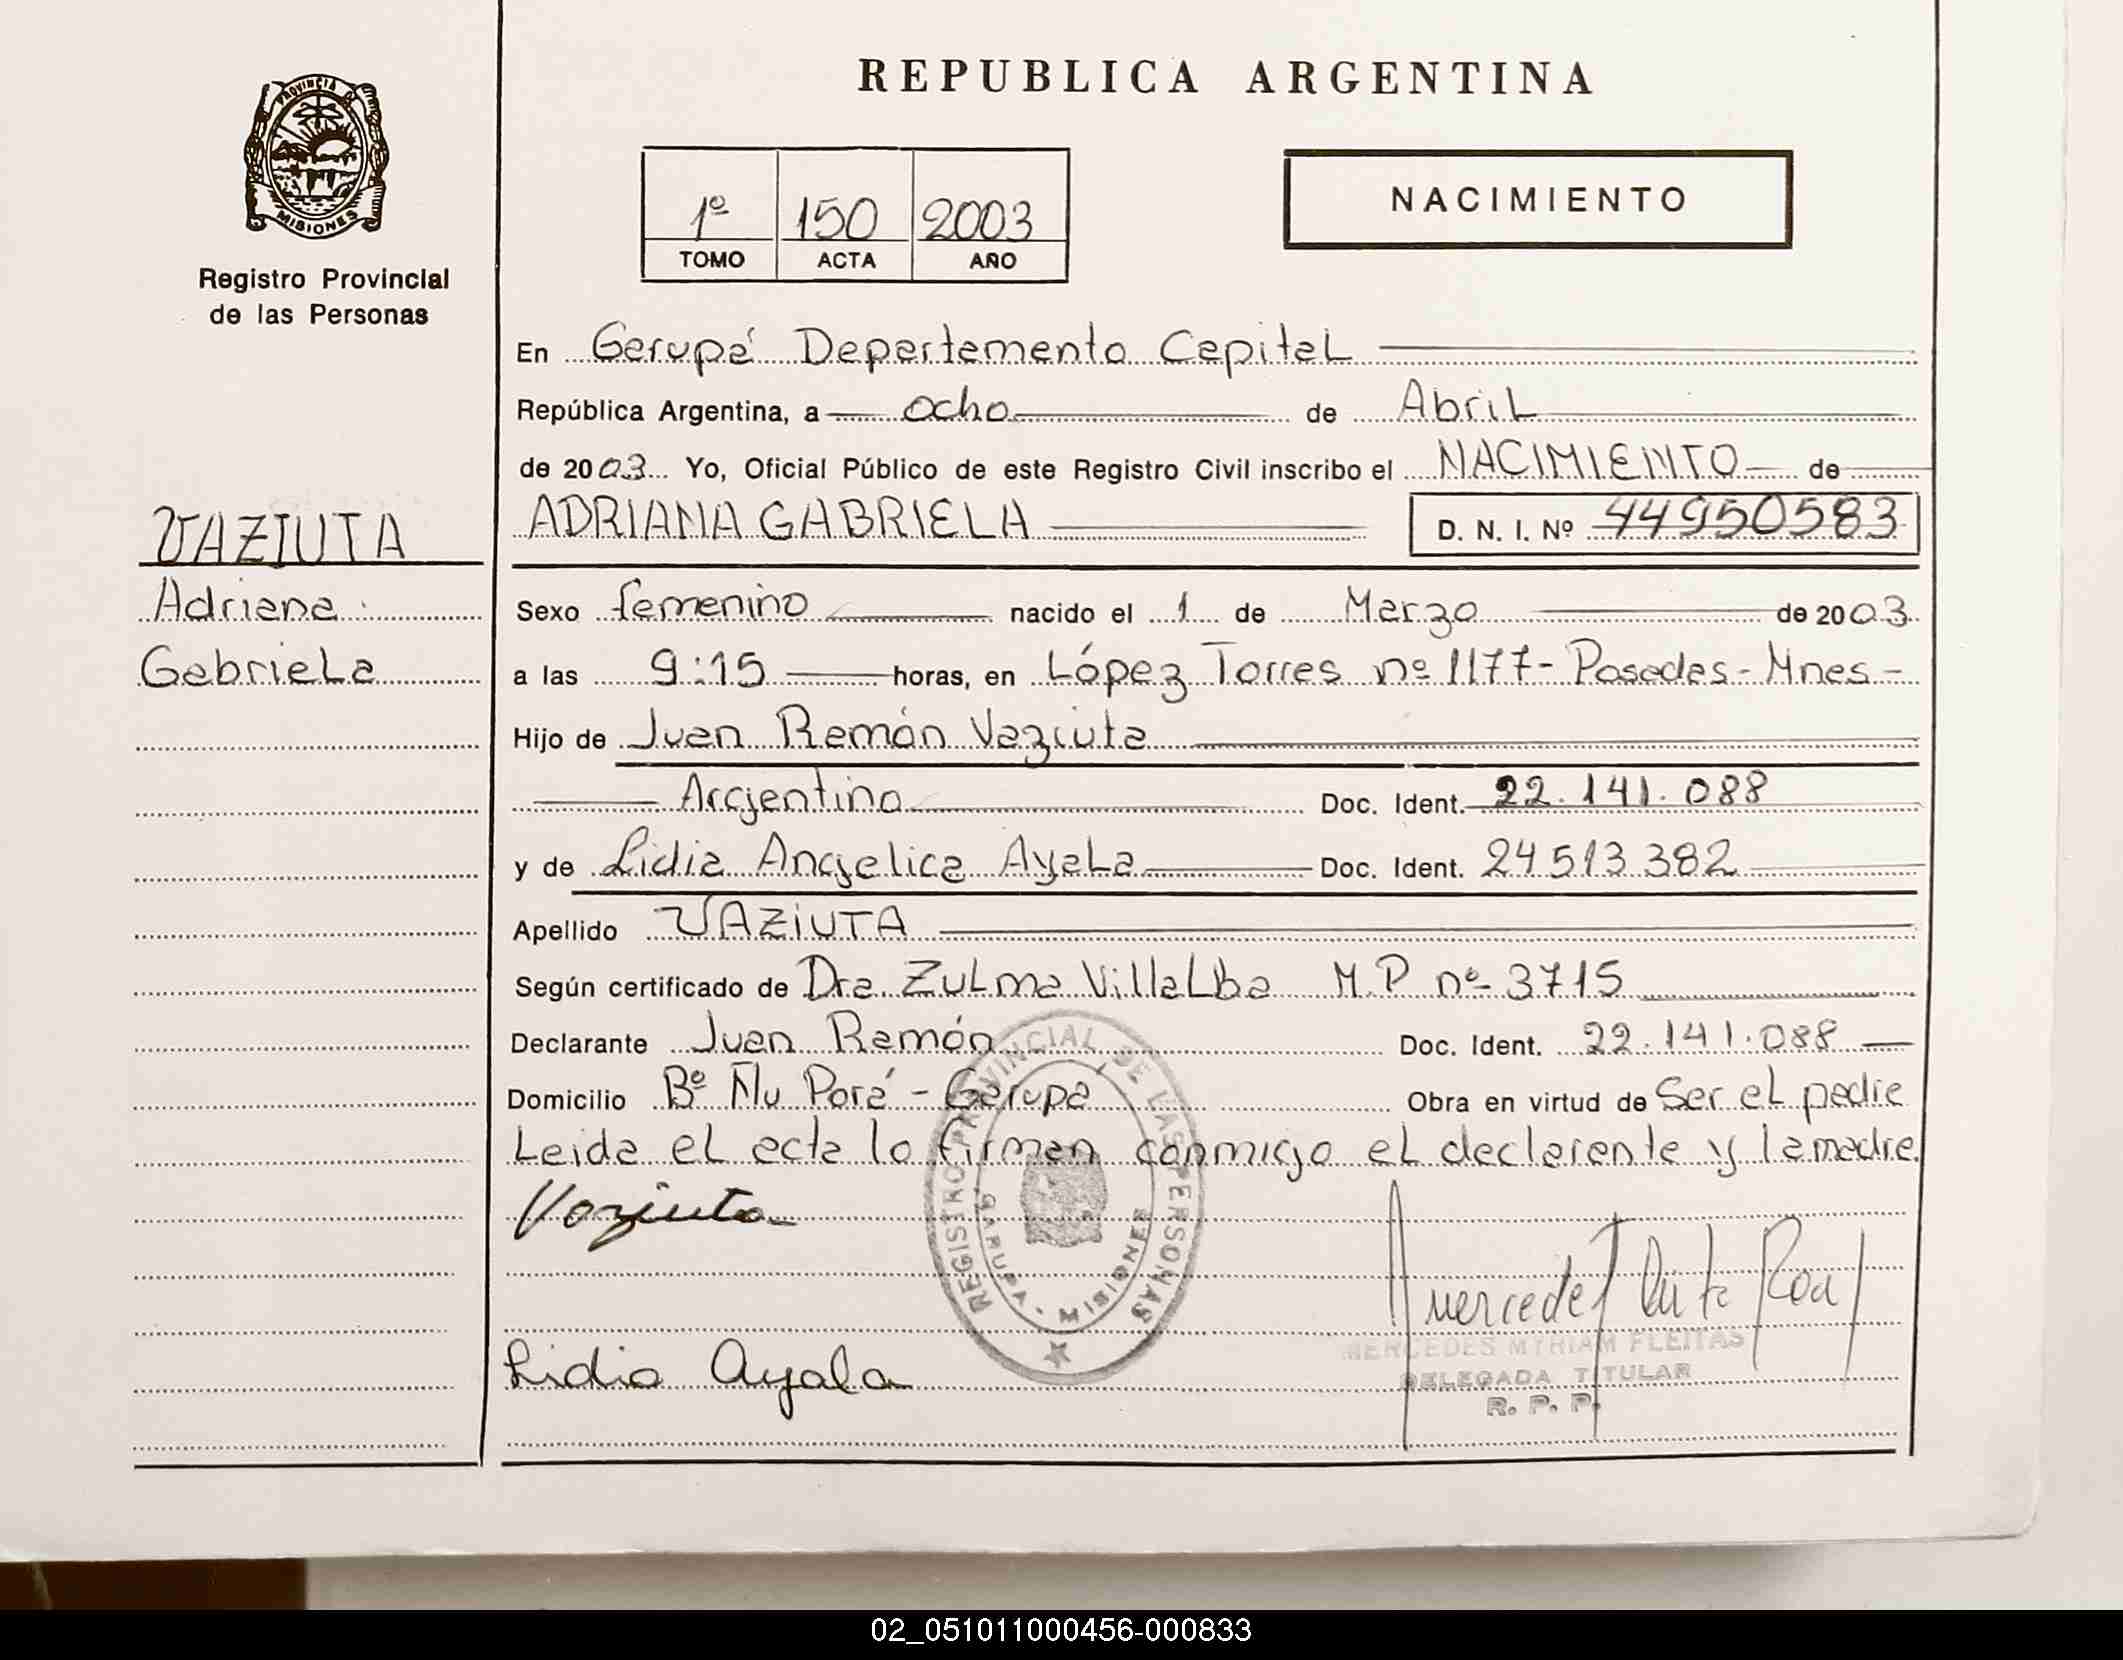 REPUBLICA ARGENTINA
PROVINCIA DE
MISIONES
Registro Provincial
de las Personas
1º 150 2003
TOMO ACTA AÑO
NACIMIENTO
En Garupá Departamento Capital
República Argentina, a ocho de Abril
de 2003 Yo, Oficial Público de este Registro Civil inscribo el NACIMIENTO de
VAZIUTA
ADRIANA GABRIELA D. N. I. Nº 44950583
Adriana
Gabriela
Sexo femenino nacido el 1 de Marzo de 2003
a las 9:15 horas, en López Torres nº 1177- Posadas- Mnes-
Hijo de Juan Ramón Vaziuta
Argentino Doc. Ident. 22.141.088
y de Lidia Angelica Ayala Doc. Ident. 24.513.382
Apellido VAZIUTA
Según certificado de Dra. Zulma Villalba M.P nº 3715
Declarante Juan Ramón Doc. Ident. 22.141.088
Domicilio Bº Ñu Porá - Garupa Obra en virtud de Ser el padre
Leida el acta lo firman conmigo el declarante y la madre.
Vaziuta
REGISTRO PROVINCIAL DE LAS PERSONAS
GARUPA - MISIONES
Lidia Ayala
MERCEDES MYRIAM FLEITAS
DELEGADA TITULAR
R. P. P.
02_051011000456-000833